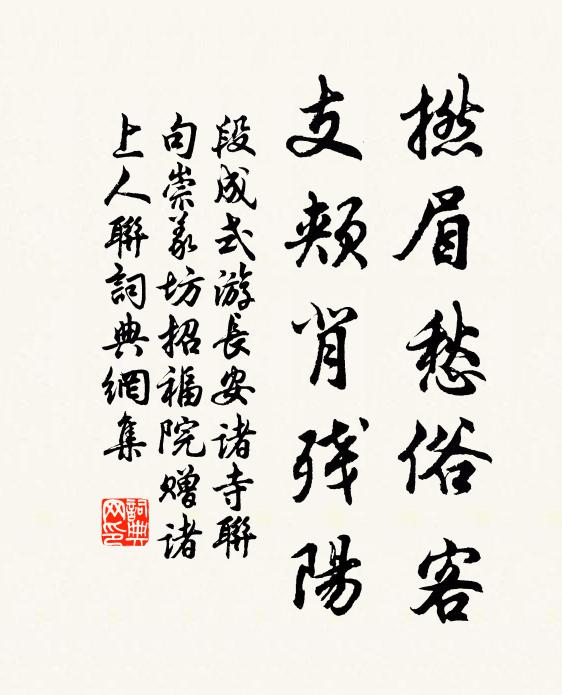 撚眉愁俗客
支頰背残陽
段成式游長安諸寺聯
句崇義坊招福院贈諸
上人聯詞典網集
詞典网印